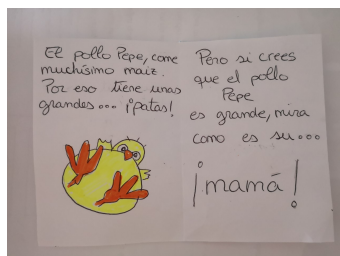 El pollo Pepe, come
muchísimo maíz.
Por eso tiene unas
grandes... ¡patas!
Pero si crees
que el pollo
Pepe
es grande, mira
como es su...
¡mamá!